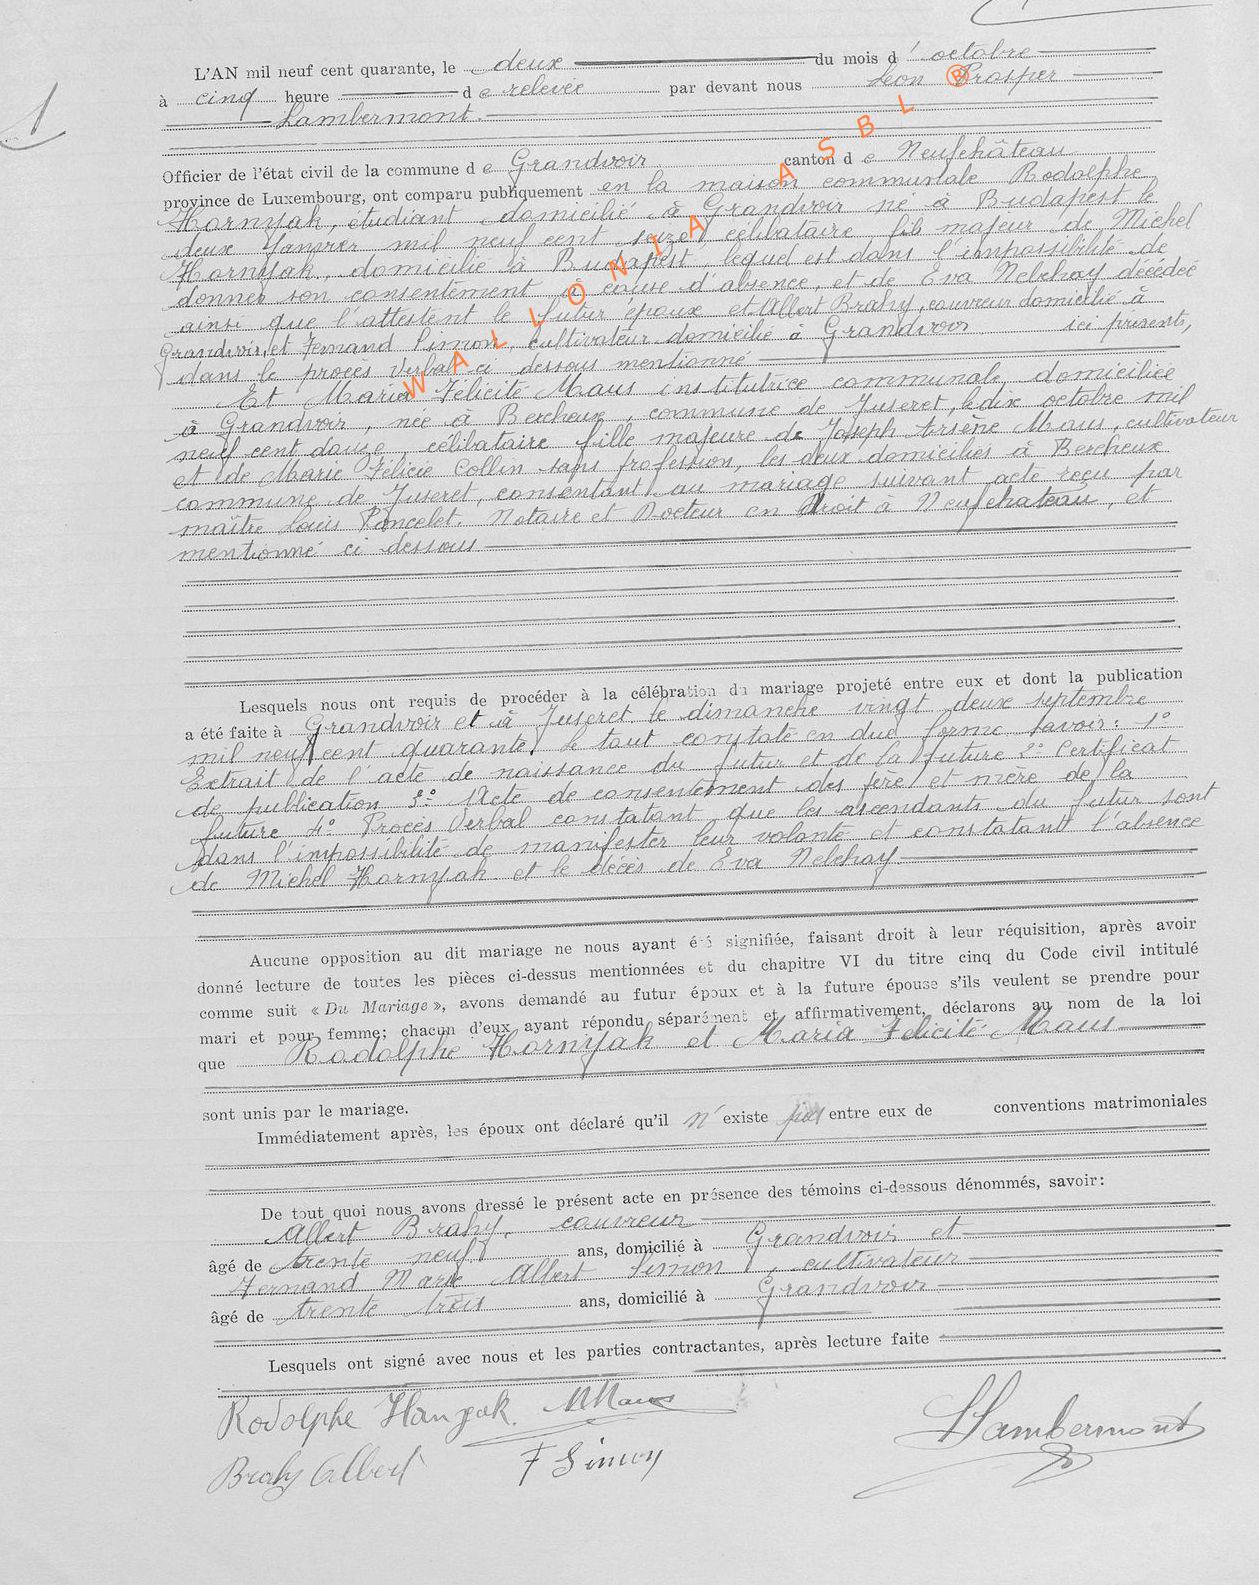 1
L'AN mil neuf cent quarante, le deux du mois d'octobre
à cinq heure de relevée par devant nous Léon Prosper
Lambermont.
Officier de l'état civil de la commune de Grandvoir canton de Neufchâteau
province de Luxembourg, ont comparu publiquement en la maison communale Rodolphe
Hornyak, étudiant domicilié à Grandvoir né à Budapest le
deux Janvier mil neuf cent seize, célibataire fils majeur de Michel
Hornyak, domicilié à Budapest, lequel est dans l'impossibilité de
donner son consentement à cause d'absence, et de Eva Nelehay décédée
ainsi que l'attestent le futur époux et Albert Brahy, couvreur domicilié à
Grandvoir, et Fernand Simon, cultivateur domicilié à Grandvoir ici présents,
dans le procès verbal ci dessous mentionné
Et Maria Félicité Maus institutrice communale, domiciliée
à Grandvoir, née à Bercheux, commune de Juseret, le dix octobre mil
neuf cent douze, célibataire fille majeure de Joseph Arsène Maus, cultivateur
et de Marie Félicie Collin sans profession, les deux domiciliés à Bercheux
commune de Juseret, consentant au mariage suivant acte reçu par
maître Louis Poncelet. Notaire et Docteur en Droit à Neufchateau, et
mentionné ci dessous
Lesquels nous ont requis de procéder à la célébration du mariage projeté entre eux et dont la publication
a été faite à Grandvoir et à Juseret le dimanche vingt deux septembre
mil neuf cent quarante, le tout constaté en due forme savoir: 1°
Extrait de l'acte de naissance du futur et de la future 2° Certificat
de publication 3° Acte de consentement des père et mère de la
future 4° Procès Verbal constatant que les ascendants du futur sont
dans l'impossibilité de manifester leur volonté et constatant l'absence
de Michel Hornyak et le décès de Eva Nelehay
Aucune opposition au dit mariage ne nous ayant été signifiée, faisant droit à leur réquisition, après avoir
donné lecture de toutes les pièces ci-dessus mentionnées et du chapitre VI du titre cinq du Code civil intitulé
comme suit « Du Mariage », avons demandé au futur époux et à la future épouse s'ils veulent se prendre pour
mari et pour femme; chacun d'eux ayant répondu séparément et affirmativement, déclarons au nom de la loi
que Rodolphe Hornyak et Maria Félicité Maus
sont unis par le mariage.
Immédiatement après, les époux ont déclaré qu'il n'existe pas entre eux de conventions matrimoniales
De tout quoi nous avons dressé le présent acte en présence des témoins ci-dessous dénommés, savoir:
Albert Brahy, couvreur
âgé de trente neuf ans, domicilié à Grandvoir et
Fernand Marie Albert Simon, cultivateur
âgé de trente trois ans, domicilié à Grandvoir
Lesquels ont signé avec nous et les parties contractantes, après lecture faite
Rodolphe Hornyak. MMaus
LLambermont
Brahy Albert F Simon
WALLONIA ASBL ®